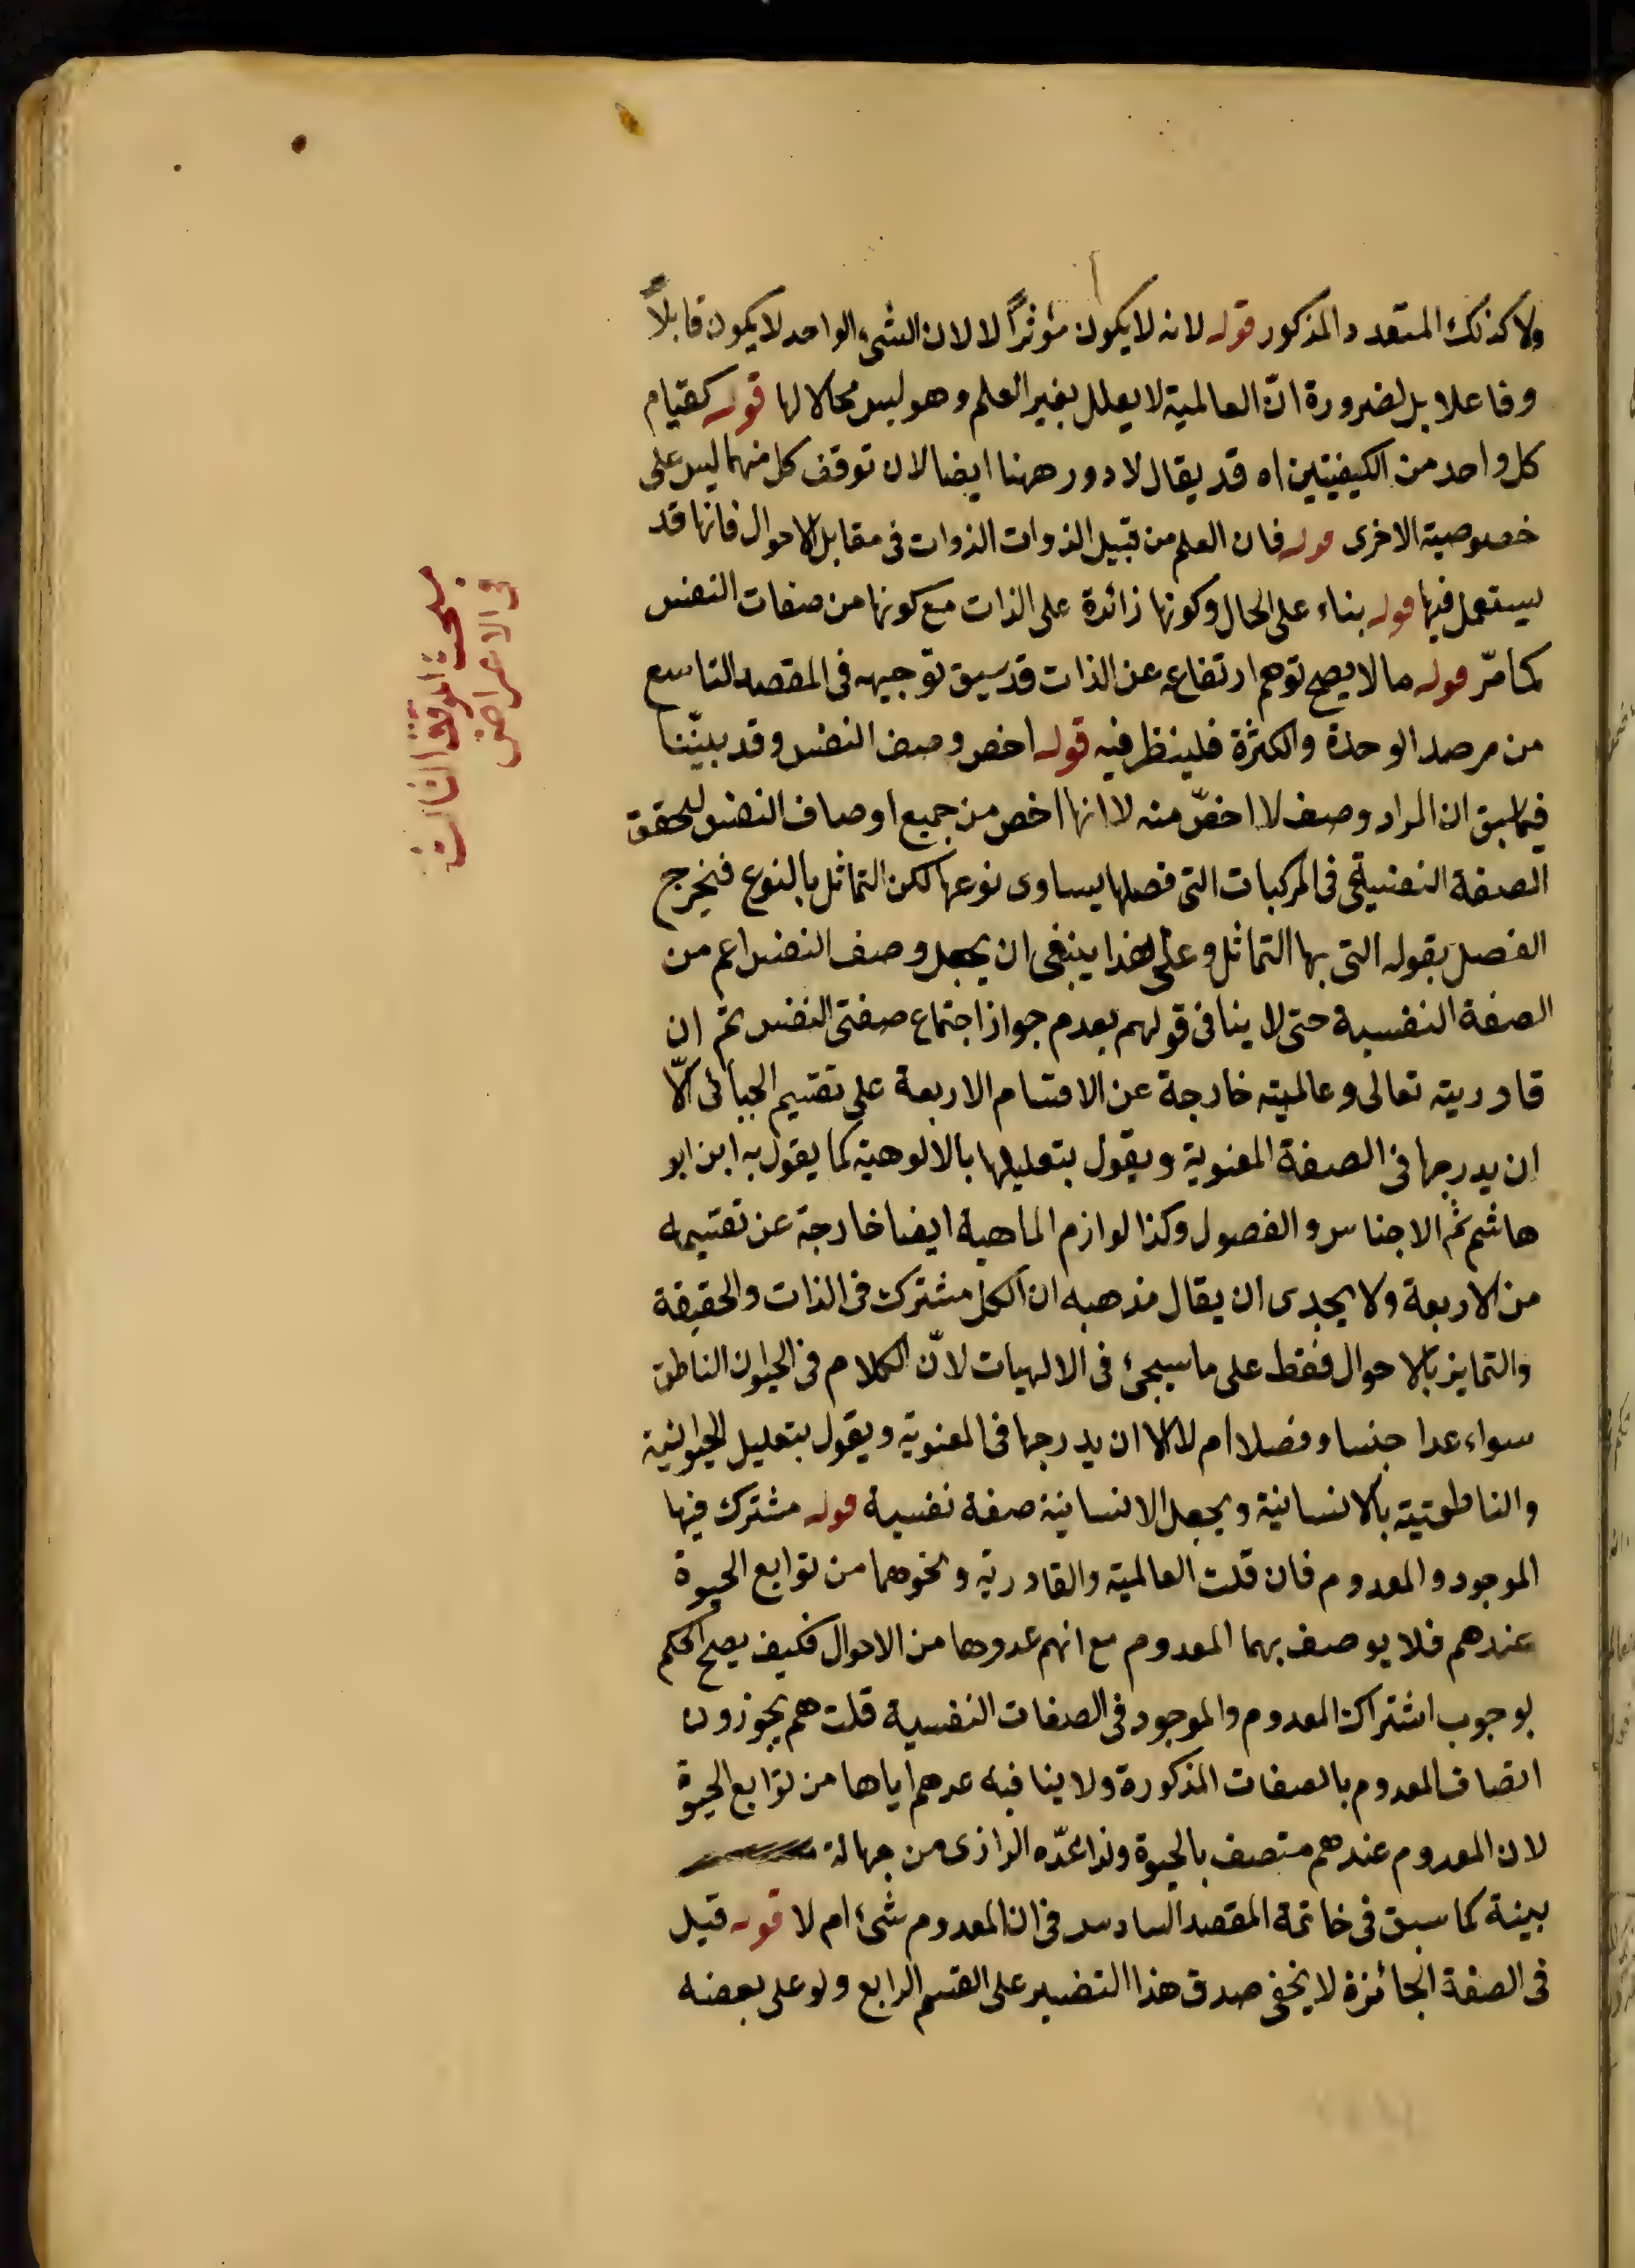 ولا كذلك المتعدد المذكور قوله لانه لا يكون مؤثرًا لا لان الشيء الواحد لا يكون قابلاً
وفاعلا بل لضرورة انّ العالمية لا يعلل بغير العلم وهو ليس محالا لها قوله كقيام
كل واحد من الكيفيتين اه قد يقال لا دور ههنا ايضا لان توقف كل منهما ليس على
خصوصية الاخرى قوله فان العلم من قبيل الذوات الذوات فى مقابل الاحوال فانها قد
يستعمل فيها قوله بناء على الحال وكونها زائدة على الذات مع كونها من صفات النفس
كما مرّ قوله ما لا يصح توهم ارتفاعه عن الذات قد سبق توجيهه فى المقصد التاسع
من مرصد الوحدة والكثرة فلينظر فيه قوله اخص وصف النفس وقد بينّنا
فيما سبق ان المراد وصف لا اخصّ منه لا انها اخص من جميع اوصاف النفس ليحقق
الصفة النفسية فى المركبات التى فصلها يساوى نوعها لكن التماثل بالنوع فيخرج
الفصل بقوله التى بها التماثل وعلى هذا ينبغى ان يجعل وصف النفس اعم من
الصفة النفسية حتى لا ينافى قولهم بعدم جواز اجتماع صفتى النفس ثم ان
قادريته تعالى وعالميته خارجة عن الاقسام الاربعة على تقسيم الجبائى الّا
ان يدرجها فى الصفة المعنوية ويقول بتعليلها بالالوهية كما يقول به ابن ابو
هاشم ثم الاجناس والفصول وكذا لوازم الماهية ايضا خارجة عن تقسيمه
من الاربعة ولا يجدى ان يقال مذهبه ان الكل مشترك فى الذات والحقيقة
والتمايز بالاحوال فقط على ما سيجئ فى الالهيات لانّ الكلام فى الحيوان الناطق
سواء عدا جنسا وفصلا ام لا الا ان يدرجها فى المعنوية ويقول بتعليل الحيوانية
والناطقية بالانسانية ويجعل الانسانية صفة نفسية قوله مشترك فيها
الموجود والمعدوم فان قلت العالمية والقادرية ونحوهما من توابع الحيوة
عندهم فلا يوصف بهما المعدوم مع انهم عدوها من الاحوال فكيف يصح الحكم
بوجوب اشتراك المعدوم والموجود فى الصفات النفسية قلت هم يجوزون
اتصاف المعدوم بالصفات المذكورة ولا ينافيه عدهم اياها من توابع الحيوة
لان المعدوم عندهم متصف بالحيوة ولذا عدّه الرازى من جهالة
بينة كما سبق فى خاتمة المقصد السادس فى ان المعدوم شئ ام لا قوله قيل
فى الصفة الجائزة لا يخفى صدق هذا التفسير على القسم الرابع ولو على بعضه
بحث الموقف الثالث
فى الاعراض